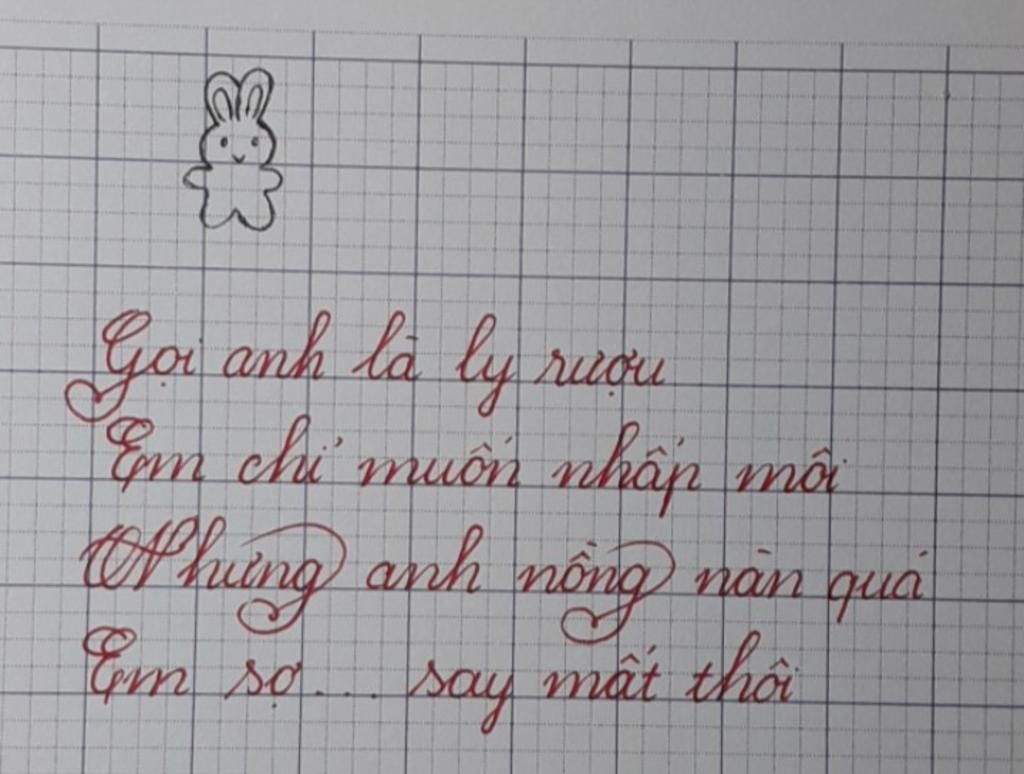 Gọi anh là ly rượu
Em chỉ muốn nhấp môi
Nhưng anh nồng nàn quá
Em sợ... say mất thôi